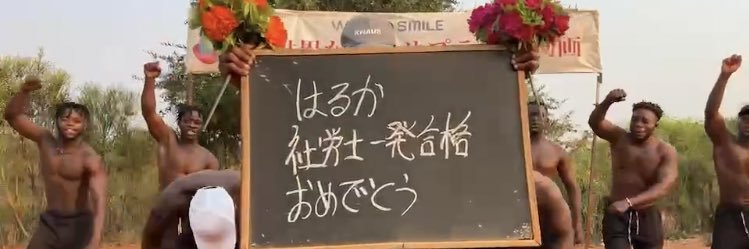 WORLD SMILE
KNAUS
はるか
社労士一発合格
おめでとう